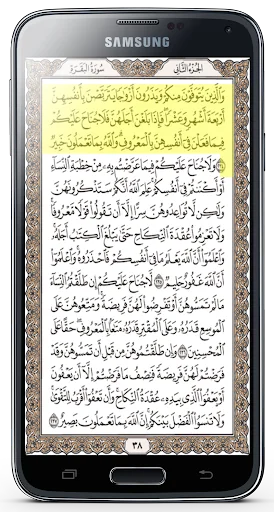 SAMSUNG
سُورَةُ البَقَرَةِ الجُزءُ الثَّانِي
وَالَّذِينَ يُتَوَفَّوْنَ مِنكُمْ وَيَذَرُونَ أَزْوَاجًا يَتَرَبَّصْنَ بِأَنفُسِهِنَّ
أَرْبَعَةَ أَشْهُرٍ وَعَشْرًا فَإِذَا بَلَغْنَ أَجَلَهُنَّ فَلَا جُنَاحَ عَلَيْكُمْ
فِيمَا فَعَلْنَ فِي أَنفُسِهِنَّ بِالْمَعْرُوفِ وَاللَّهُ بِمَا تَعْمَلُونَ خَبِيرٌ
﴿٢٣٤﴾ وَلَا جُنَاحَ عَلَيْكُمْ فِيمَا عَرَّضْتُم بِهِ مِنْ خِطْبَةِ النِّسَاءِ
أَوْ أَكْنَنتُمْ فِي أَنفُسِكُمْ عَلِمَ اللَّهُ أَنَّكُمْ سَتَذْكُرُونَهُنَّ
وَلَٰكِن لَّا تُوَاعِدُوهُنَّ سِرًّا إِلَّا أَن تَقُولُوا قَوْلًا مَّعْرُوفًا
وَلَا تَعْزِمُوا عُقْدَةَ النِّكَاحِ حَتَّىٰ يَبْلُغَ الْكِتَابُ أَجَلَهُ
وَاعْلَمُوا أَنَّ اللَّهَ يَعْلَمُ مَا فِي أَنفُسِكُمْ فَاحْذَرُوهُ وَاعْلَمُوا
أَنَّ اللَّهَ غَفُورٌ حَلِيمٌ ﴿٢٣٥﴾ لَّا جُنَاحَ عَلَيْكُمْ إِن طَلَّقْتُمُ النِّسَاءَ
مَا لَمْ تَمَسُّوهُنَّ أَوْ تَفْرِضُوا لَهُنَّ فَرِيضَةً وَمَتِّعُوهُنَّ عَلَى
الْمُوسِعِ قَدَرُهُ وَعَلَى الْمُقْتِرِ قَدَرُهُ مَتَاعًا بِالْمَعْرُوفِ حَقًّا عَلَى
الْمُحْسِنِينَ ﴿٢٣٦﴾ وَإِن طَلَّقْتُمُوهُنَّ مِن قَبْلِ أَن تَمَسُّوهُنَّ وَقَدْ
فَرَضْتُمْ لَهُنَّ فَرِيضَةً فَنِصْفُ مَا فَرَضْتُمْ إِلَّا أَن يَعْفُونَ
أَوْ يَعْفُوَ الَّذِي بِيَدِهِ عُقْدَةُ النِّكَاحِ وَأَن تَعْفُوا أَقْرَبُ لِلتَّقْوَىٰ
وَلَا تَنسَوُا الْفَضْلَ بَيْنَكُمْ إِنَّ اللَّهَ بِمَا تَعْمَلُونَ بَصِيرٌ ﴿٢٣٧﴾
٣٨